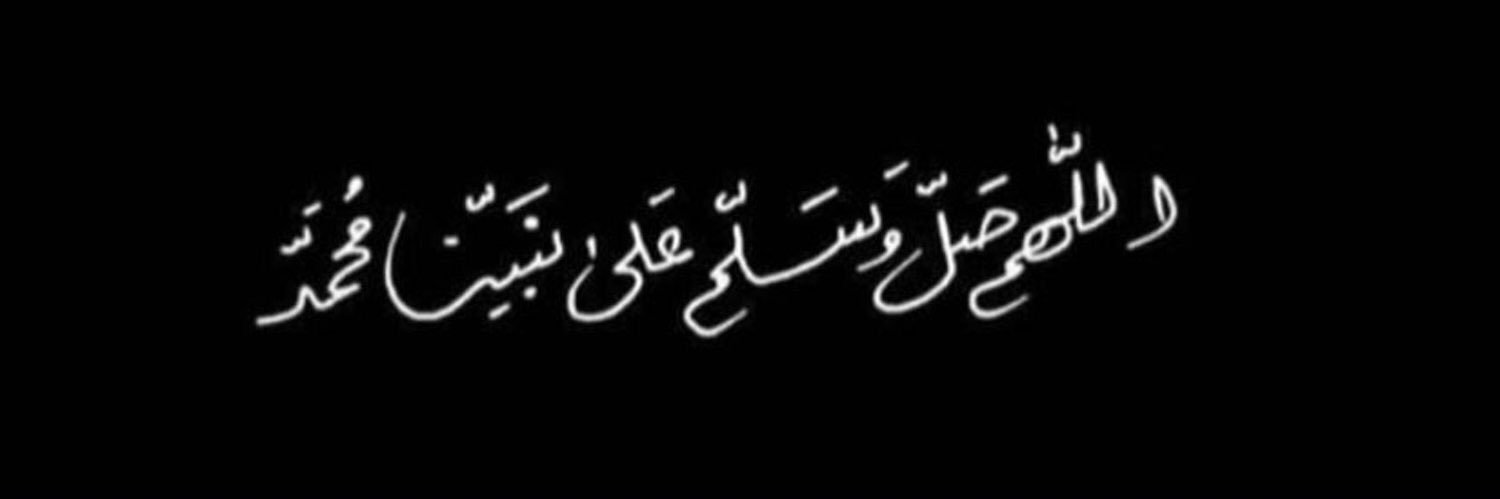 اللهم صَلّ وَسَلّم عَلى نبَيّنا مُحمَّد